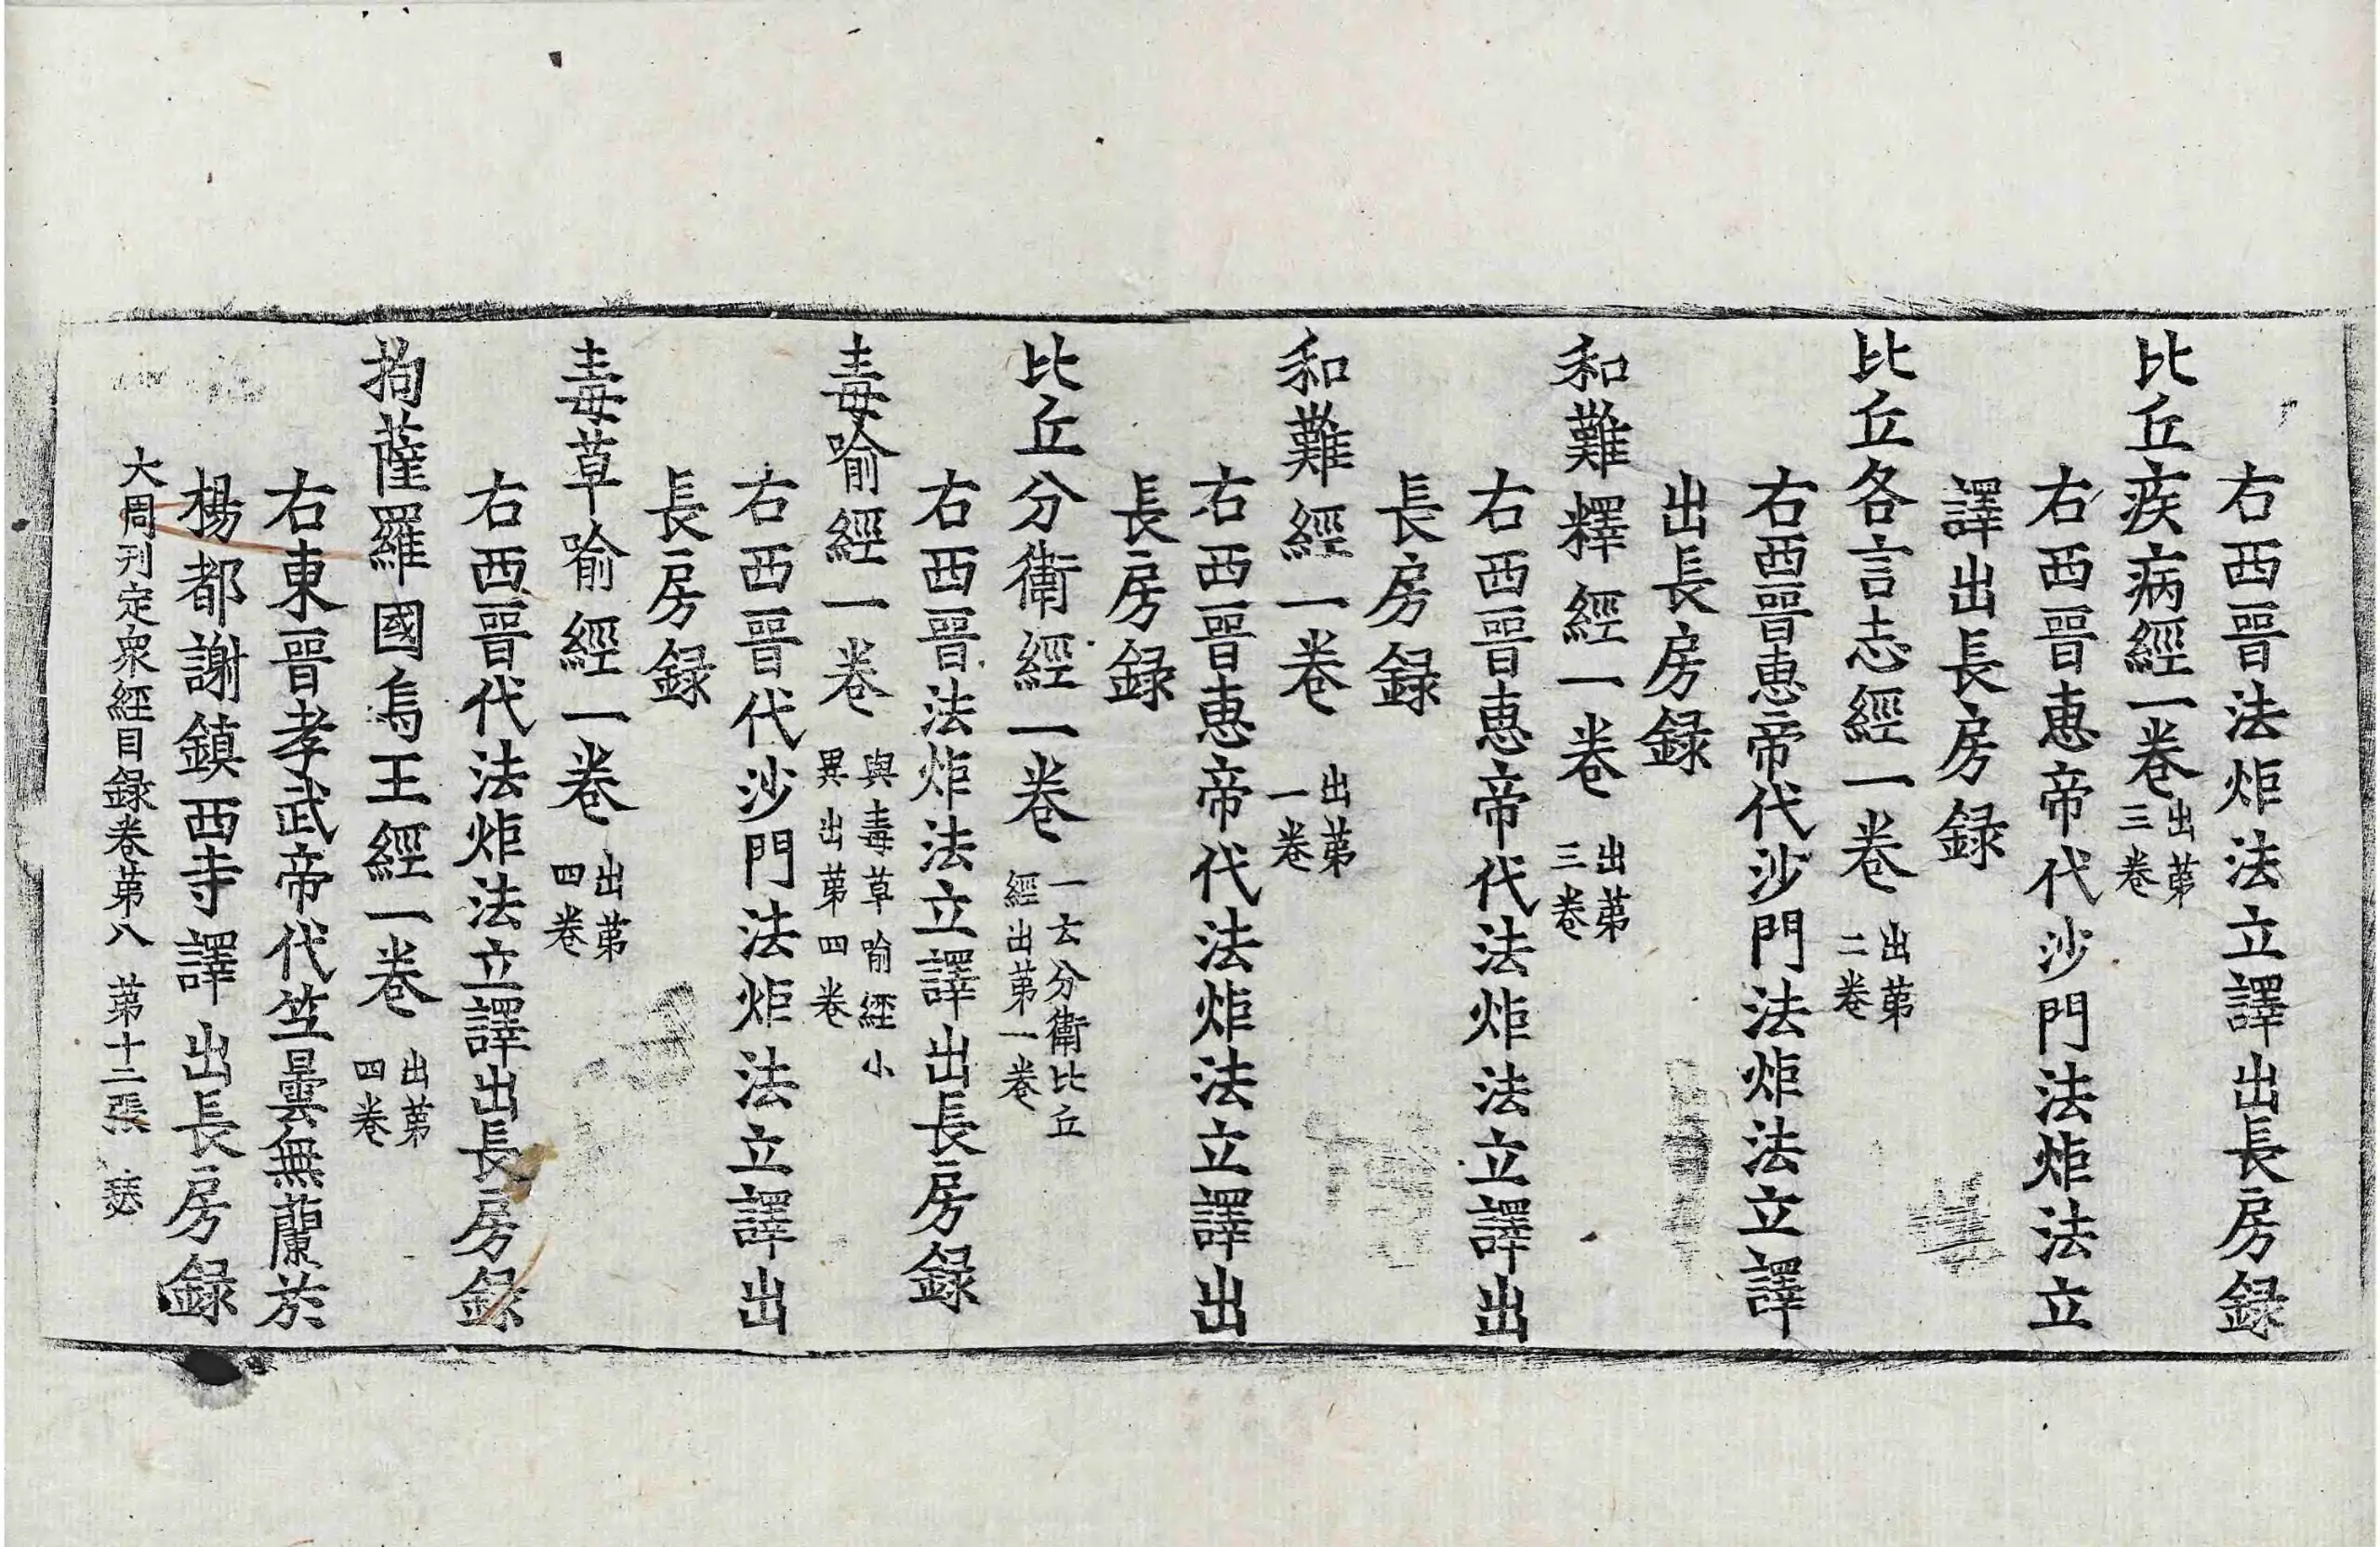 右西晉法炬法立譯出長房録
比丘疾病經一卷出第三卷
右西晉惠帝代沙門法炬法立
譯出長房録
比丘各言志經一卷出第二卷
右西晉惠帝代沙門法炬法立譯
出長房録
和難釋經一卷出第三卷
右西晉惠帝代法炬法立譯出
長房録
和難經一卷出第一卷
右西晉惠帝代法炬法立譯出
長房録
比丘分衛經一卷一云分衛比丘經出第一卷
右西晉法炬法立譯出長房録
毒喻經一卷與毒草喻經小異出第四卷
右西晉代沙門法炬法立譯出
長房録
毒草喻經一卷出第四卷
右西晉代法炬法立譯出長房録
拘薩羅國烏王經一卷出第四卷
右東晉孝武帝代竺曇無蘭於
楊都謝鎮西寺譯出長房録
大周刊定衆經目録卷第八 第十二張 瑟